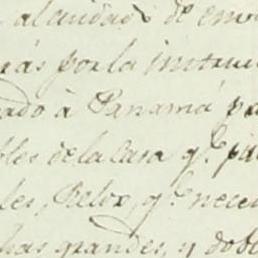 al cuidado de env
rás por la instruc
ado à Panamá pa
bles de la Casa q.e pu
les, Relox, q.e neces
has grandes, y dobl